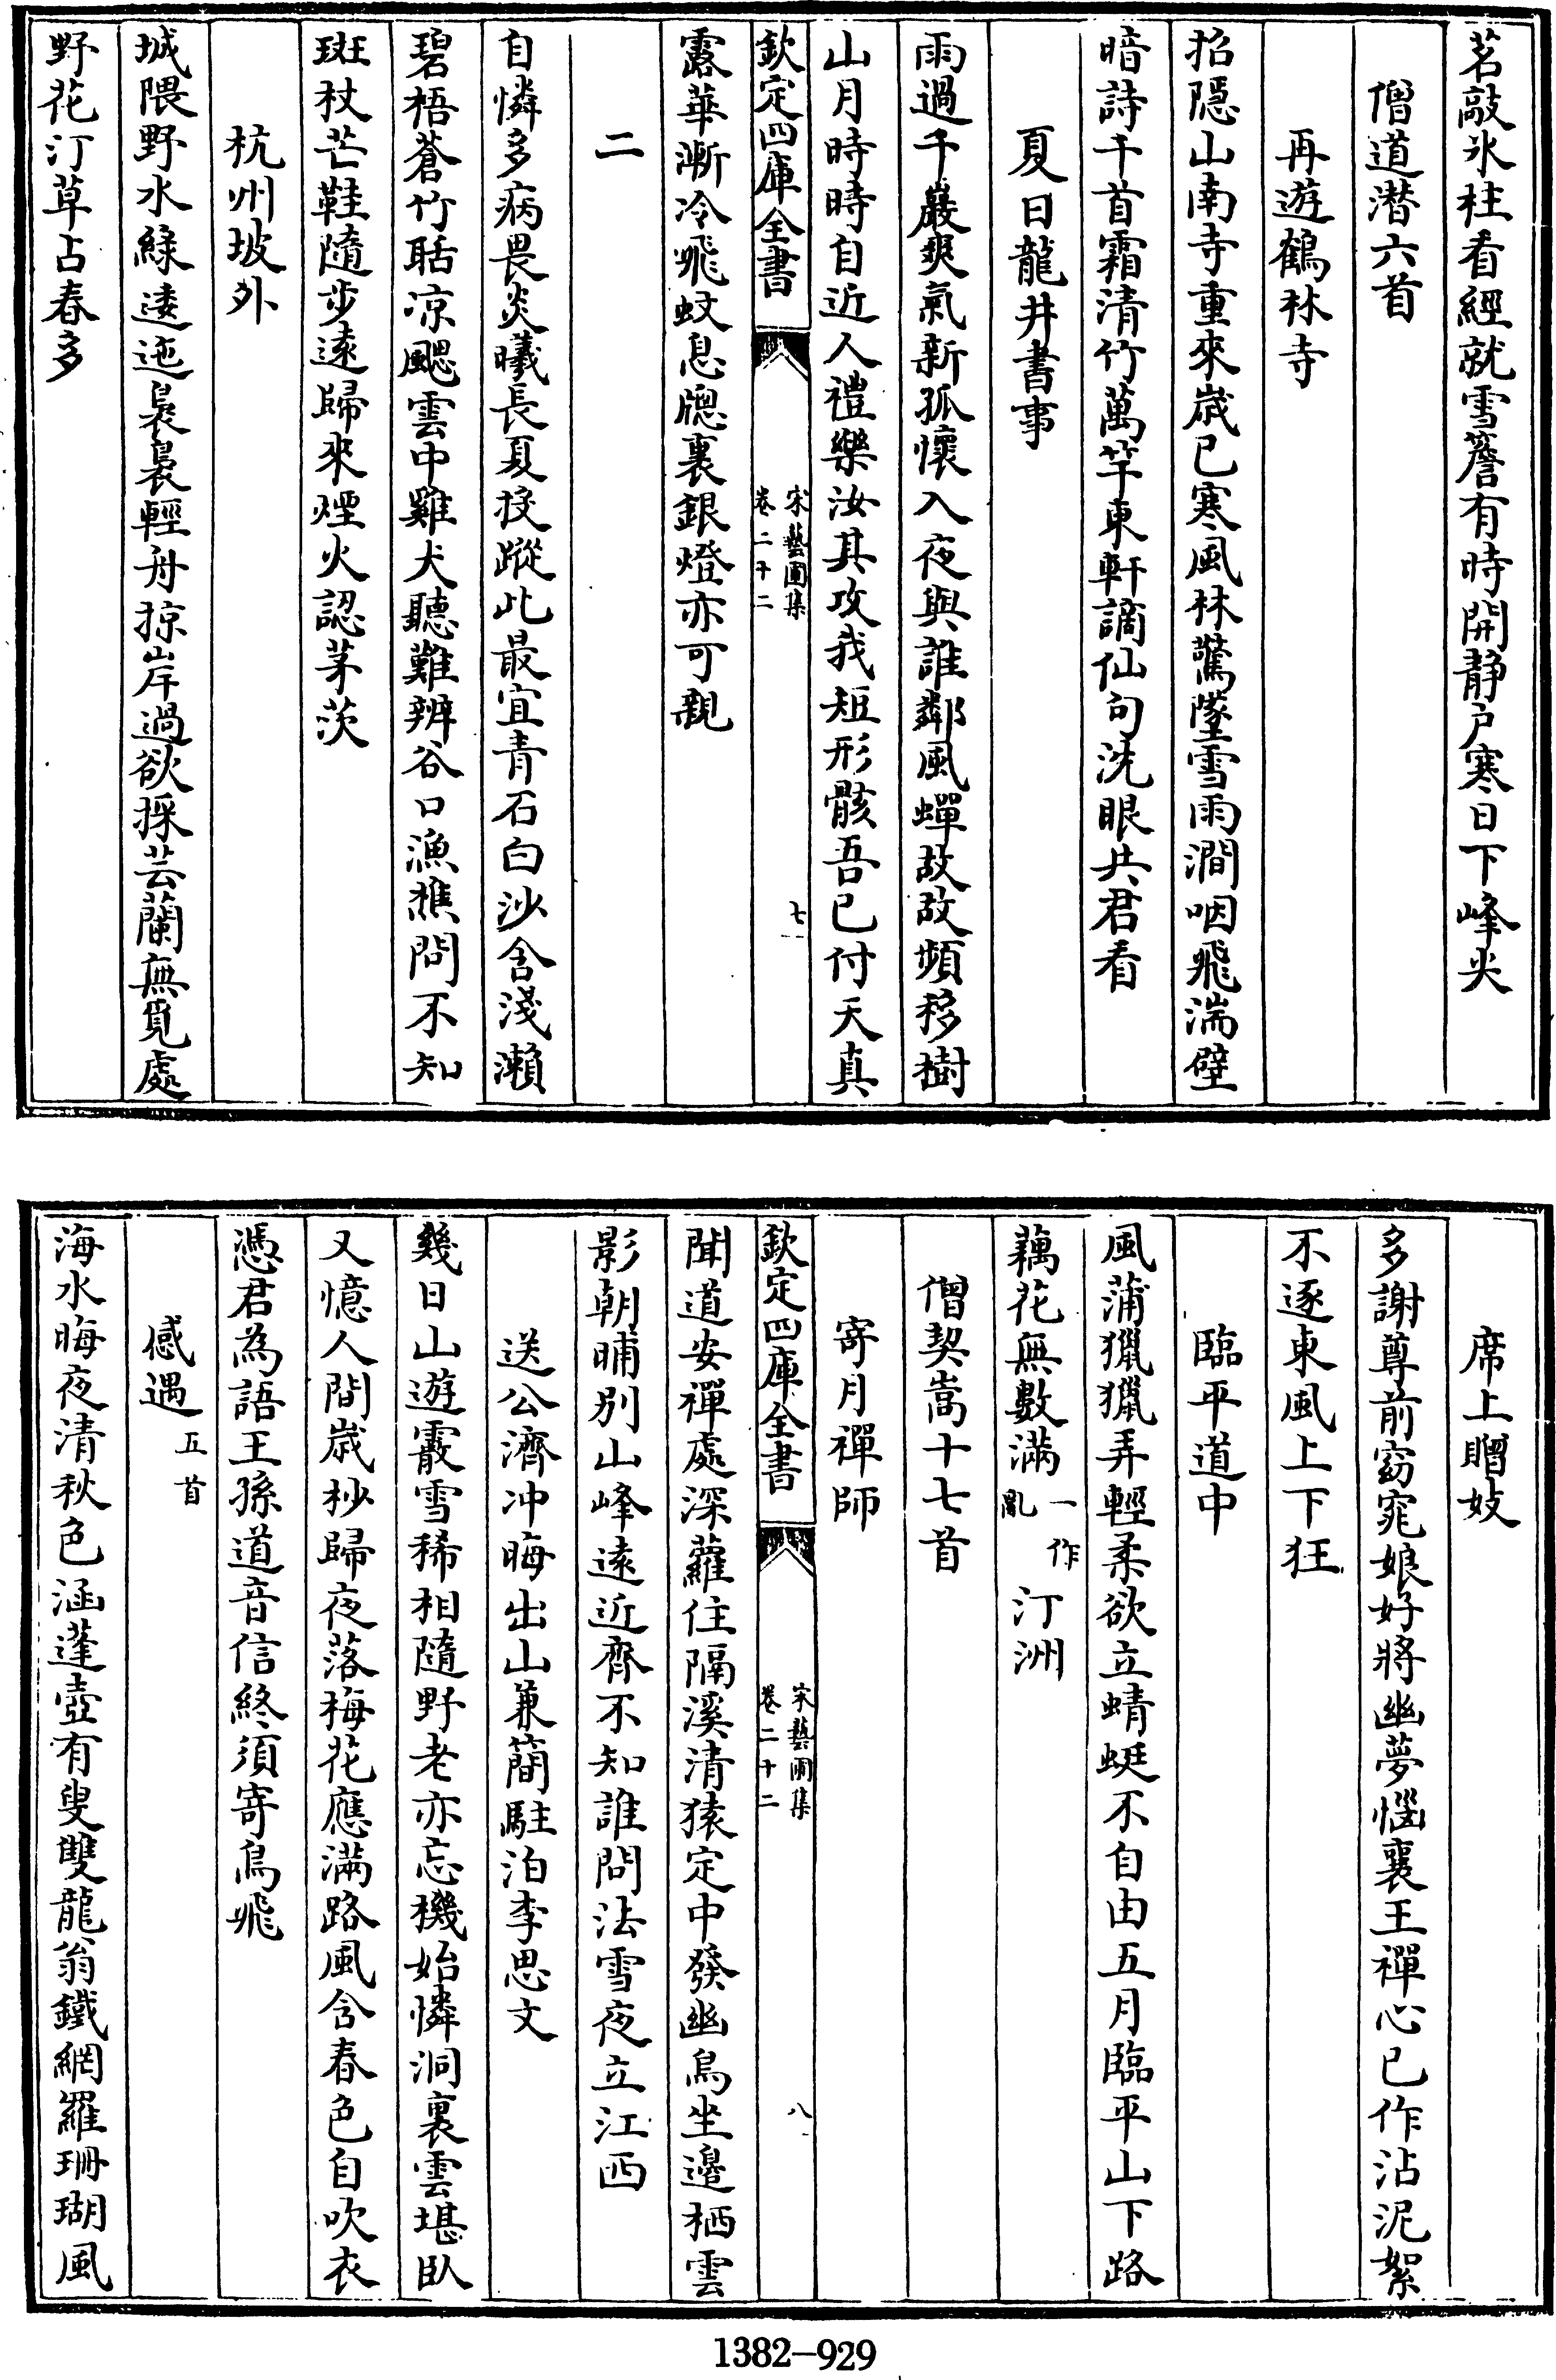 茗敲氷柱看經就雪簷有時開静户寒日下峰尖
僧道潜六首
再遊鶴林寺
招隱山南寺重來歲已寒風林驚墜雪雨澗咽飛湍壁
暗詩千首霜清竹萬竿東軒謫仙句洗眼共君看
夏日龍井書事
雨過千巖爽氣新孤懷入夜與誰鄰風蟬故故頻移樹
山月時時自近人禮樂汝其攻我短形骸吾已付天真
欽定四庫全書
宋藝圃集
卷二十二
七
露華漸冷飛蚊息牕裏銀燈亦可親
二
自憐多病畏炎曦長夏投蹤此最宜青石白沙含淺瀨
碧梧蒼竹聒凉颸雲中雞犬聽難辨谷口漁樵問不知
斑杖芒鞋隨步遠歸來煙火認茅茨
杭州坡外
城隈野水綠逶迤裊裊輕舟掠岸過欲採芸蘭無覓處
野花汀草占春多
席上贈妓
多謝尊前窈窕娘好將幽夢惱襄王禪心已作沾泥絮
不逐東風上下狂
臨平道中
風蒲獵獵弄輕柔欲立蜻蜓不自由五月臨平山下路
藕花無數滿一作亂汀洲
僧契嵩十七首
寄月禪師
欽定四庫全書
宋藝圃集
卷二十二
八
聞道安禪處深蘿住隔溪清猿定中發幽鳥坐邊栖雲
影朝晡別山峰遠近齊不知誰問法雪夜立江西
送公濟冲晦出山兼簡駐泊李思文
幾日山遊霰雪稀相隨野老亦忘機始憐洞裏雲堪臥
又憶人間歲杪歸夜落梅花應滿路風含春色自吹衣
憑君為語王孫道音信終須寄鳥飛
感遇五首
海水晦夜清秋色涵蓬壺有叟雙龍翁鐵網羅珊瑚風
1382-929